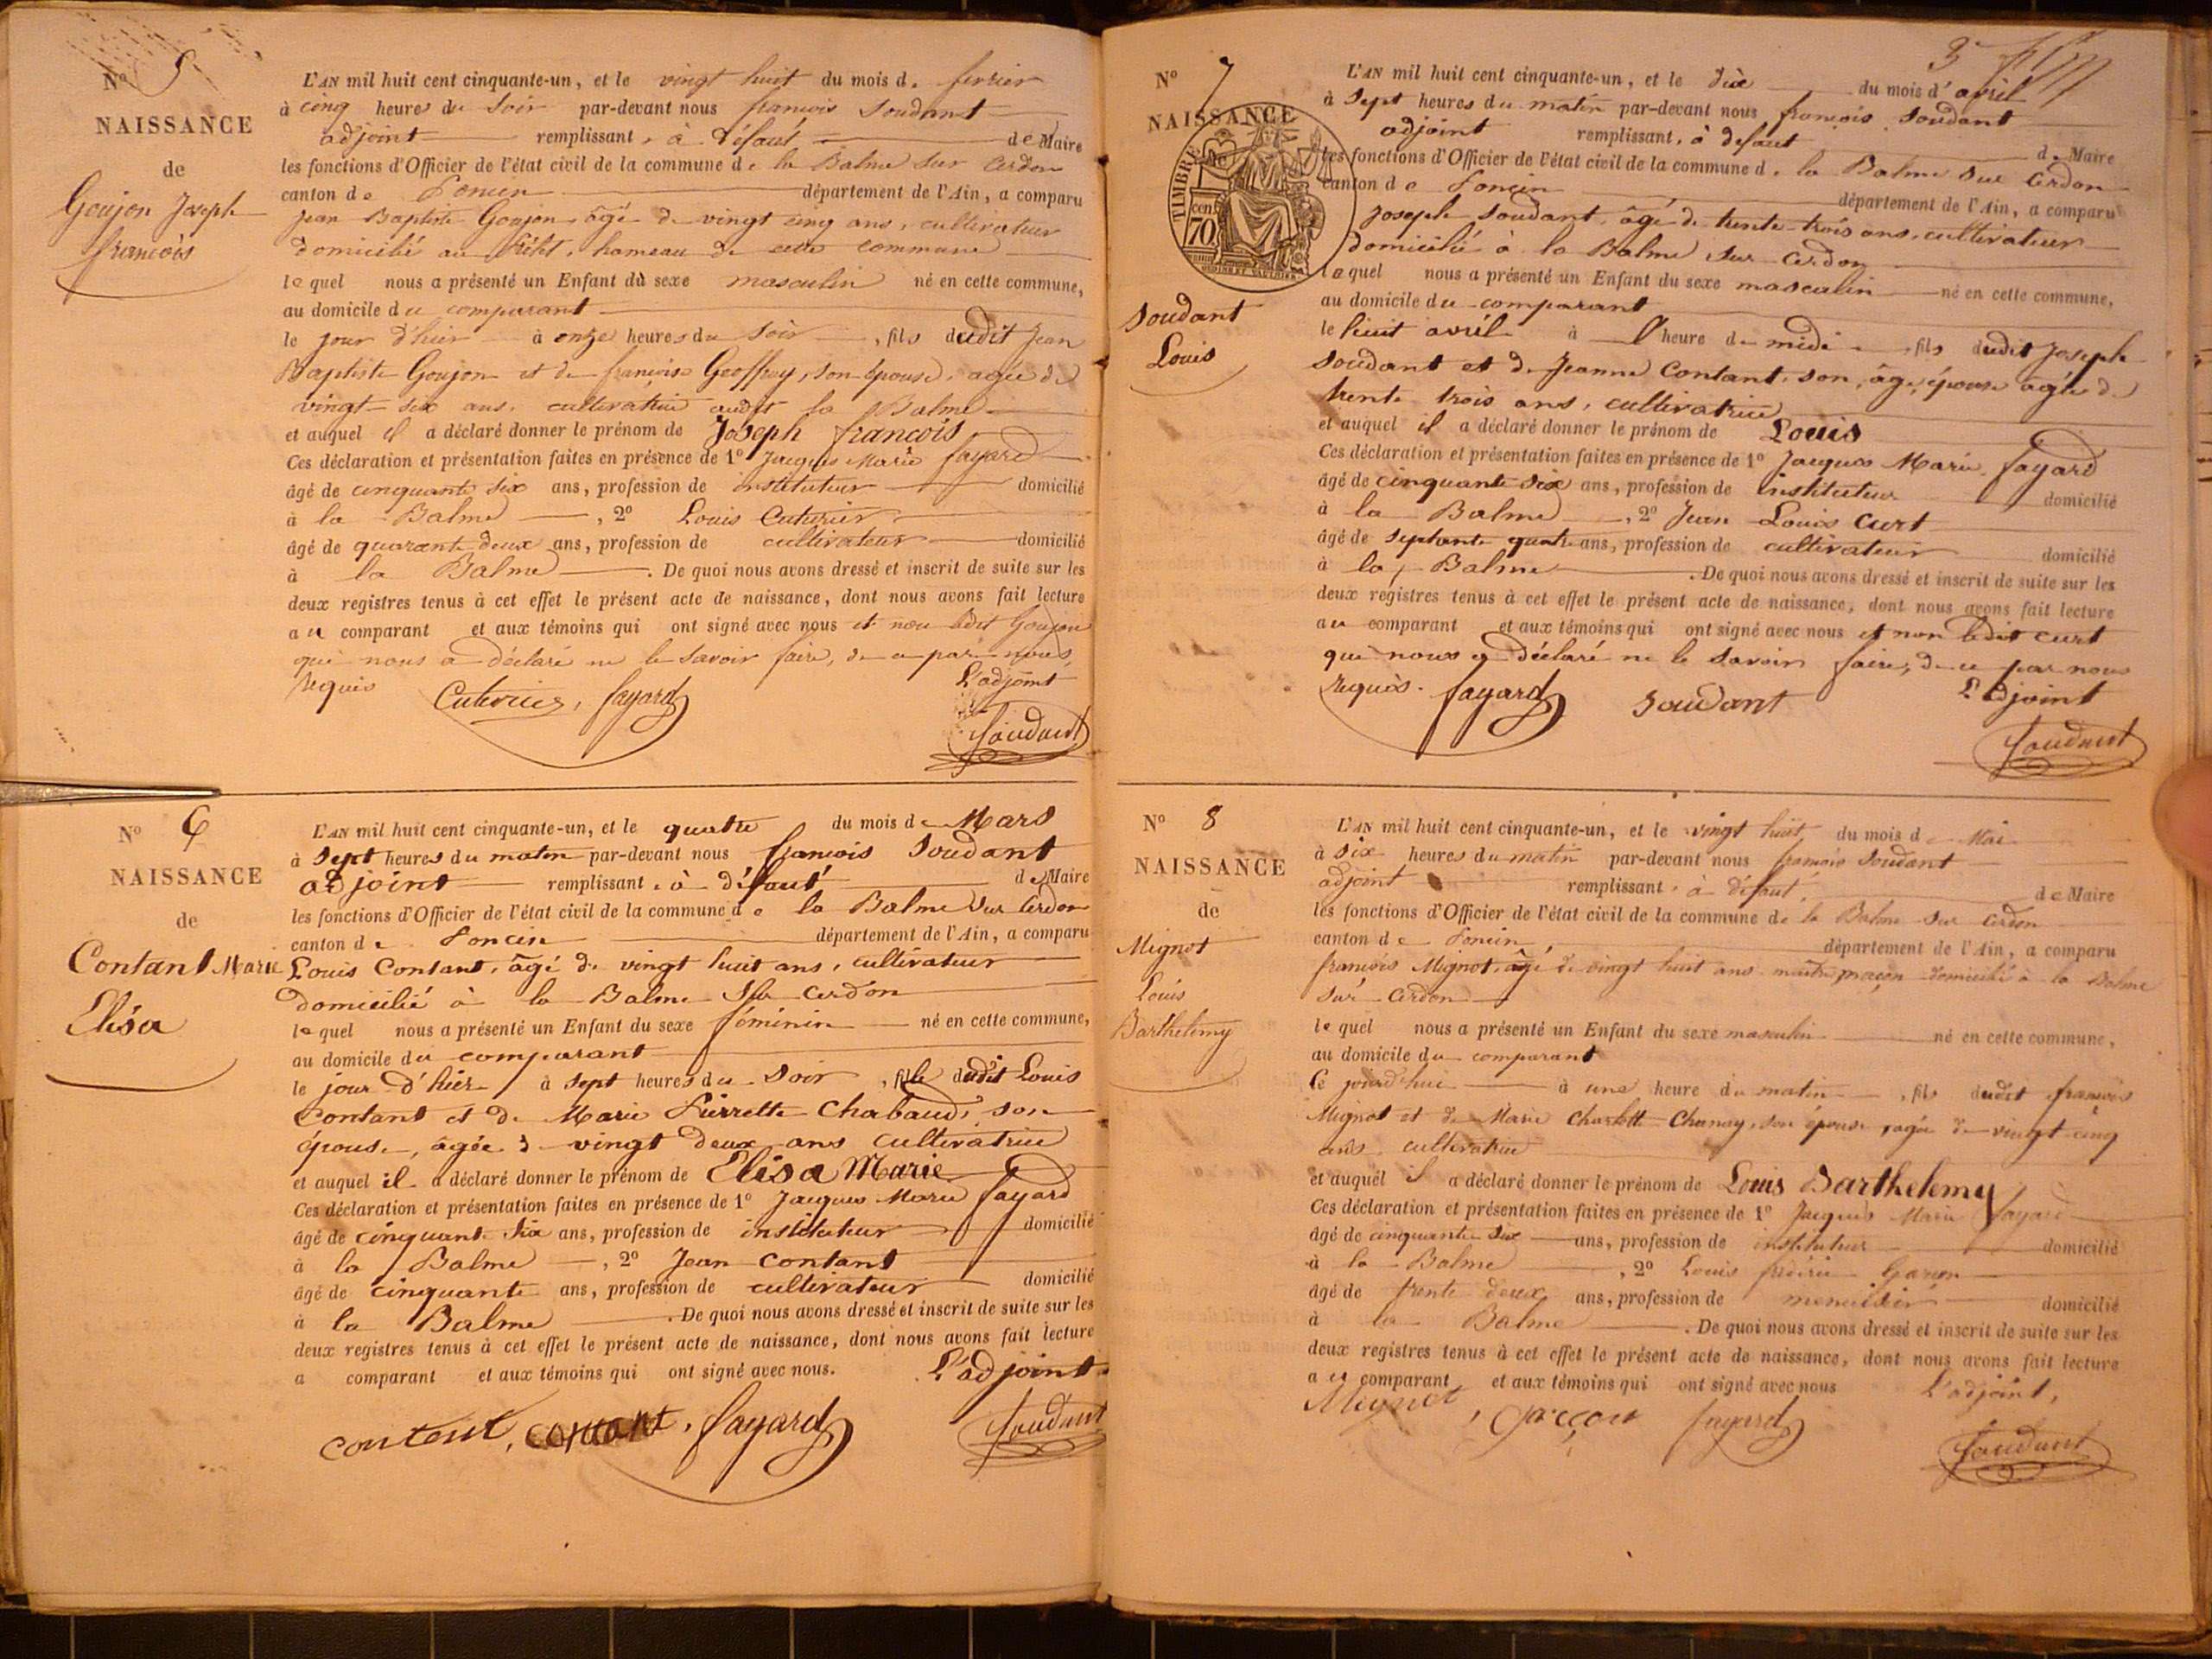 N° 5
NAISSANCE
de
Goujon Joseph
françois
L'AN mil huit cent cinquante-un, et le vingt huit du mois de fevrier
à cinq heures du soir par-devant nous françois Soudant
adjoint remplissant, à défaut de Maire
les fonctions d'Officier de l'état civil de la commune de la Balme sur Cerdon
canton de Poncin département de l'Ain, a comparu
Jean Baptiste Goujon, âgé de vingt cinq ans, cultivateur
domicilié au hameau de cette commune
lequel nous a présenté un Enfant du sexe masculin né en cette commune,
au domicile du comparant
le jour d'hier à onze heures du soir, fils dudit Jean
Baptiste Goujon et de françoise Geoffray, son épouse, agée de
vingt-six ans, cultivatrice audit la Balme
et auquel il a déclaré donner le prénom de Joseph françois
Ces déclaration et présentation faites en présence de 1° Jacques Marie fayard
âgé de cinquante six ans, profession de instituteur domicilié
à la Balme, 2° Louis Cuturier
âgé de quarante deux ans, profession de cultivateur domicilié
à la Balme. De quoi nous avons dressé et inscrit de suite sur les
deux registres tenus à cet effet le présent acte de naissance, dont nous avons fait lecture
au comparant et aux témoins qui ont signé avec nous et non ledit Goujon
qui nous a déclaré ne le savoir faire, de ce par nous
requis L'adjoint
Cuturier, fayard
Soudant
N° 6
NAISSANCE
de
Contant Marie
Elisa
L'AN mil huit cent cinquante-un, et le quatre du mois de Mars
à sept heures du matin par-devant nous françois Soudant
adjoint remplissant, à défaut de Maire
les fonctions d'Officier de l'état civil de la commune de la Balme sur Cerdon
canton de Poncin département de l'Ain, a comparu
Louis Contant, âgé de vingt huit ans, cultivateur
domicilié à la Balme sur Cerdon
lequel nous a présenté un Enfant du sexe féminin né en cette commune,
au domicile du comparant
le jour d'hier à sept heures du soir, fille dudit Louis
Contant et de Marie Pierrette Chabaud, son
épouse, âgée de vingt deux ans cultivatrice
et auquel il a déclaré donner le prénom de Elisa Marie
Ces déclaration et présentation faites en présence de 1° Jacques Marie fayard
âgé de cinquante six ans, profession de instituteur domicilié
à la Balme, 2° Jean Contant
âgé de cinquante ans, profession de cultivateur domicilié
à la Balme. De quoi nous avons dressé et inscrit de suite sur les
deux registres tenus à cet effet le présent acte de naissance, dont nous avons fait lecture
a comparant et aux témoins qui ont signé avec nous. L'adjoint
contant, contant, fayard
Soudant
3
N° 7
NAISSANCE
de
TIMBRE
cen.
70
Soudant
Louis
L'AN mil huit cent cinquante-un, et le dix du mois d'avril
à sept heures du matin par-devant nous françois Soudant
adjoint remplissant, à défaut de Maire
les fonctions d'Officier de l'état civil de la commune de la Balme sur Cerdon
canton de Poncin département de l'Ain, a comparu
Joseph Soudant, âgé de trente-trois ans, cultivateur
domicilié à la Balme sur Cerdon
lequel nous a présenté un Enfant du sexe masculin né en cette commune,
au domicile du comparant
le huit avril à l'heure de midi, fils dudit Joseph
Soudant et de Jeanne Contant, son, âgé, épouse âgée de
trente trois ans, cultivatrice
et auquel il a déclaré donner le prénom de Louis
Ces déclaration et présentation faites en présence de 1° Jacques Marie fayard
âgé de cinquante six ans, profession de instituteur domicilié
à la Balme, 2° Jean Louis Curt
âgé de septante quatre ans, profession de cultivateur domicilié
à la Balme. De quoi nous avons dressé et inscrit de suite sur les
deux registres tenus à cet effet le présent acte de naissance, dont nous avons fait lecture
au comparant et aux témoins qui ont signé avec nous et non ledit Curt
qui nous a déclaré ne le savoir faire, de ce par nous
requis. fayard Soudant L'adjoint
Soudant
N° 8
NAISSANCE
de
Mignot
Louis
Barthelemy
L'AN mil huit cent cinquante-un, et le vingt huit du mois de Mai
à six heures du matin par-devant nous françois Soudant
adjoint remplissant, à défaut, de Maire
les fonctions d'Officier de l'état civil de la commune de la Balme sur Cerdon
canton de Poncin département de l'Ain, a comparu
françois Mignot, âgé de vingt huit ans maître maçon domicilié à la Balme
sur Cerdon
lequel nous a présenté un Enfant du sexe masculin né en cette commune,
au domicile du comparant
Ce jourd'hui à une heure du matin, fils dudit françois
Mignot et de Marie Charlotte Chanay, son épouse, agée de vingt-cinq
ans, cultivatrice
et auquel il a déclaré donner le prénom de Louis Barthelemy
Ces déclaration et présentation faites en présence de 1° Jacques Marie fayard
âgé de cinquante six ans, profession de instituteur domicilié
à la Balme, 2° Louis
âgé de trente deux ans, profession de menuisier domicilié
à la Balme. De quoi nous avons dressé et inscrit de suite sur les
deux registres tenus à cet effet le présent acte de naissance, dont nous avons fait lecture
au comparant et aux témoins qui ont signé avec nous L'adjoint,
Mignot, fayard
Soudant